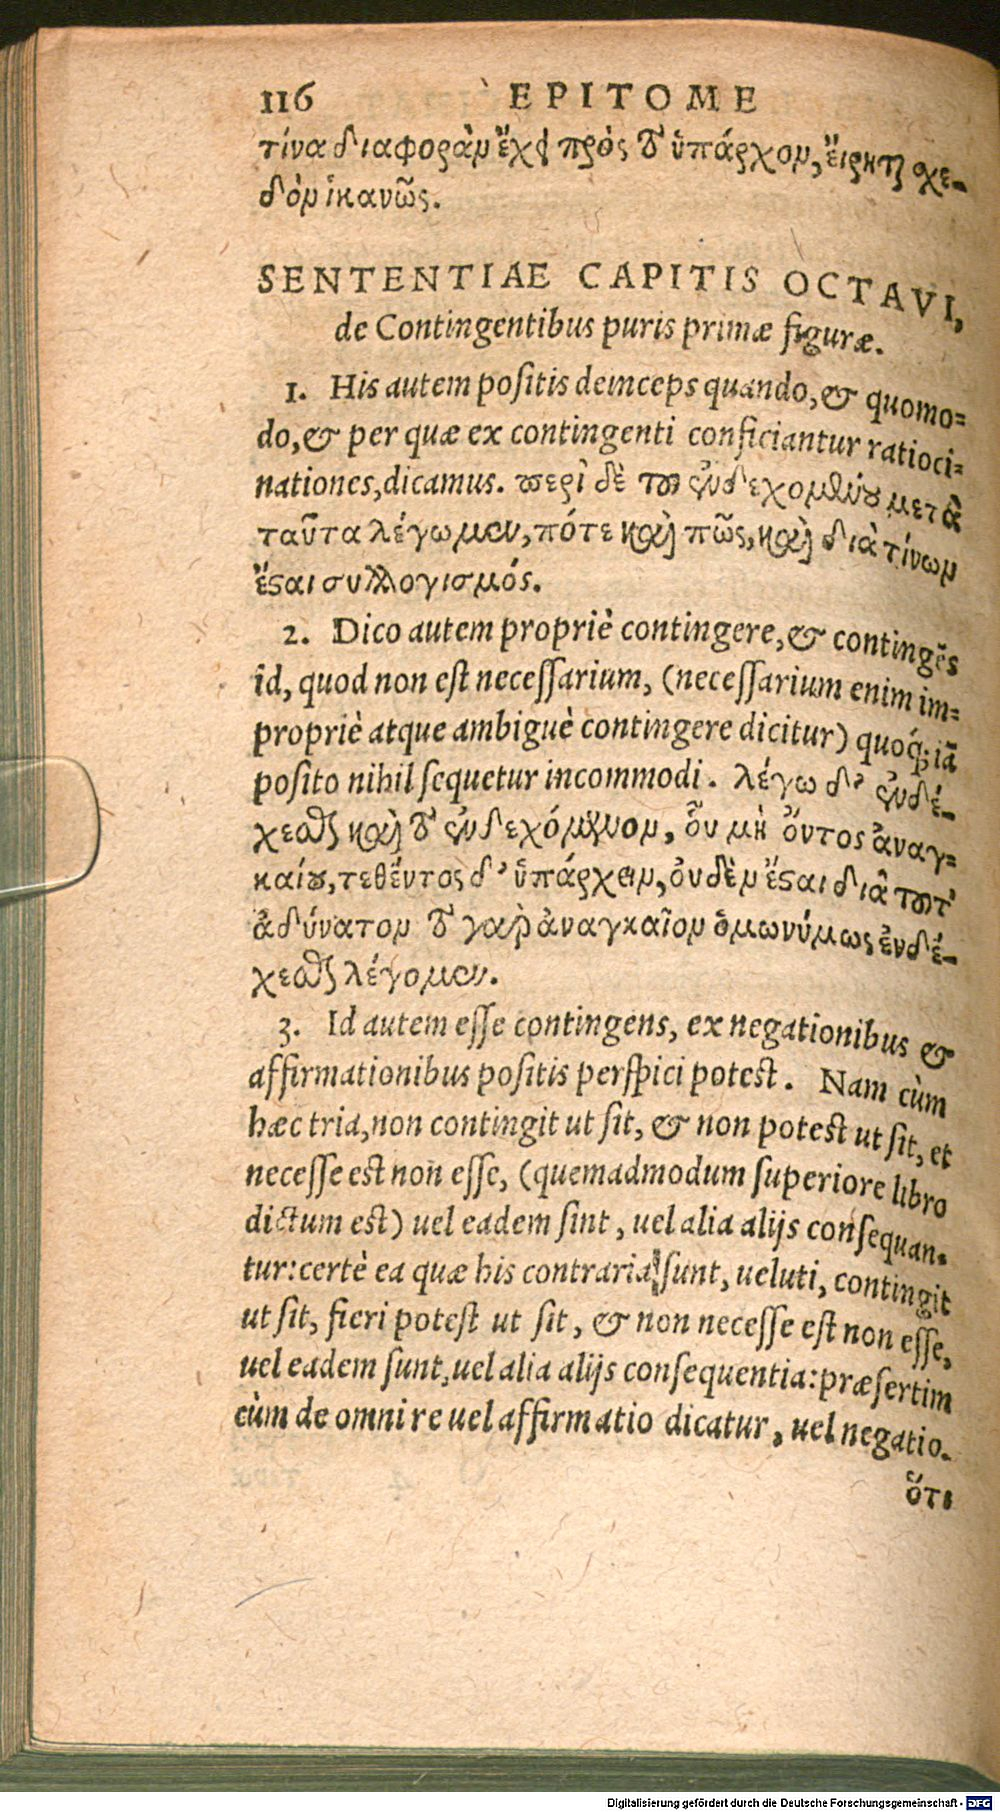 116 EPITOME
τίνα διαφορὰν ἔχει πρὸς τὸ ὑπάρχον, εἴρηται σχε-
δὸν ἱκανῶς.
SENTENTIAE CAPITIS OCTAVI,
de Contingentibus puris primæ figuræ.
1. His autem positis deinceps quando, & quomo-
do, & per quæ ex contingenti conficiantur ratioci-
nationes, dicamus. περὶ δὲ τοῦ ἐνδεχομένου μετὰ
ταῦτα λέγωμεν, πότε καὶ πῶς, καὶ διὰ τίνων
ἔσαι συλλογισμός.
2. Dico autem propriè contingere, & contingẽs
id, quod non est necessarium, (necessarium enim im-
propriè atque ambiguè contingere dicitur) quoq́; iã
posito nihil sequetur incommodi. λέγω δ' ἐνδέ-
χεσθαι καὶ τὸ ἐνδεχόμενον, οὗ μὴ ὄντος ἀναγ-
καίου, τεθέντος δ' ὑπάρχειν, οὐδὲν ἔσαι διὰ τοῦτ'
ἀδύνατον τὸ γὰρ ἀναγκαῖον ὁμωνύμως ἐνδέ-
χεσθαι λέγομεν.
3. Id autem esse contingens, ex negationibus &
affirmationibus positis perspici potest. Nam cùm
hæc tria, non contingit ut sit, & non potest ut sit, et
necesse est non esse, (quemadmodum superiore libro
dictum est) uel eadem sint, uel alia alijs consequan-
tur: certè ea quæ his contraria sunt, ueluti, contingit
ut sit, fieri potest ut sit, & non necesse est non esse,
uel eadem sunt, uel alia alijs consequentia: præsertim
cùm de omni re uel affirmatio dicatur, uel negatio.
ὅτι
Digitalisierung gefördert durch die Deutsche Forschungsgemeinschaft - DFG